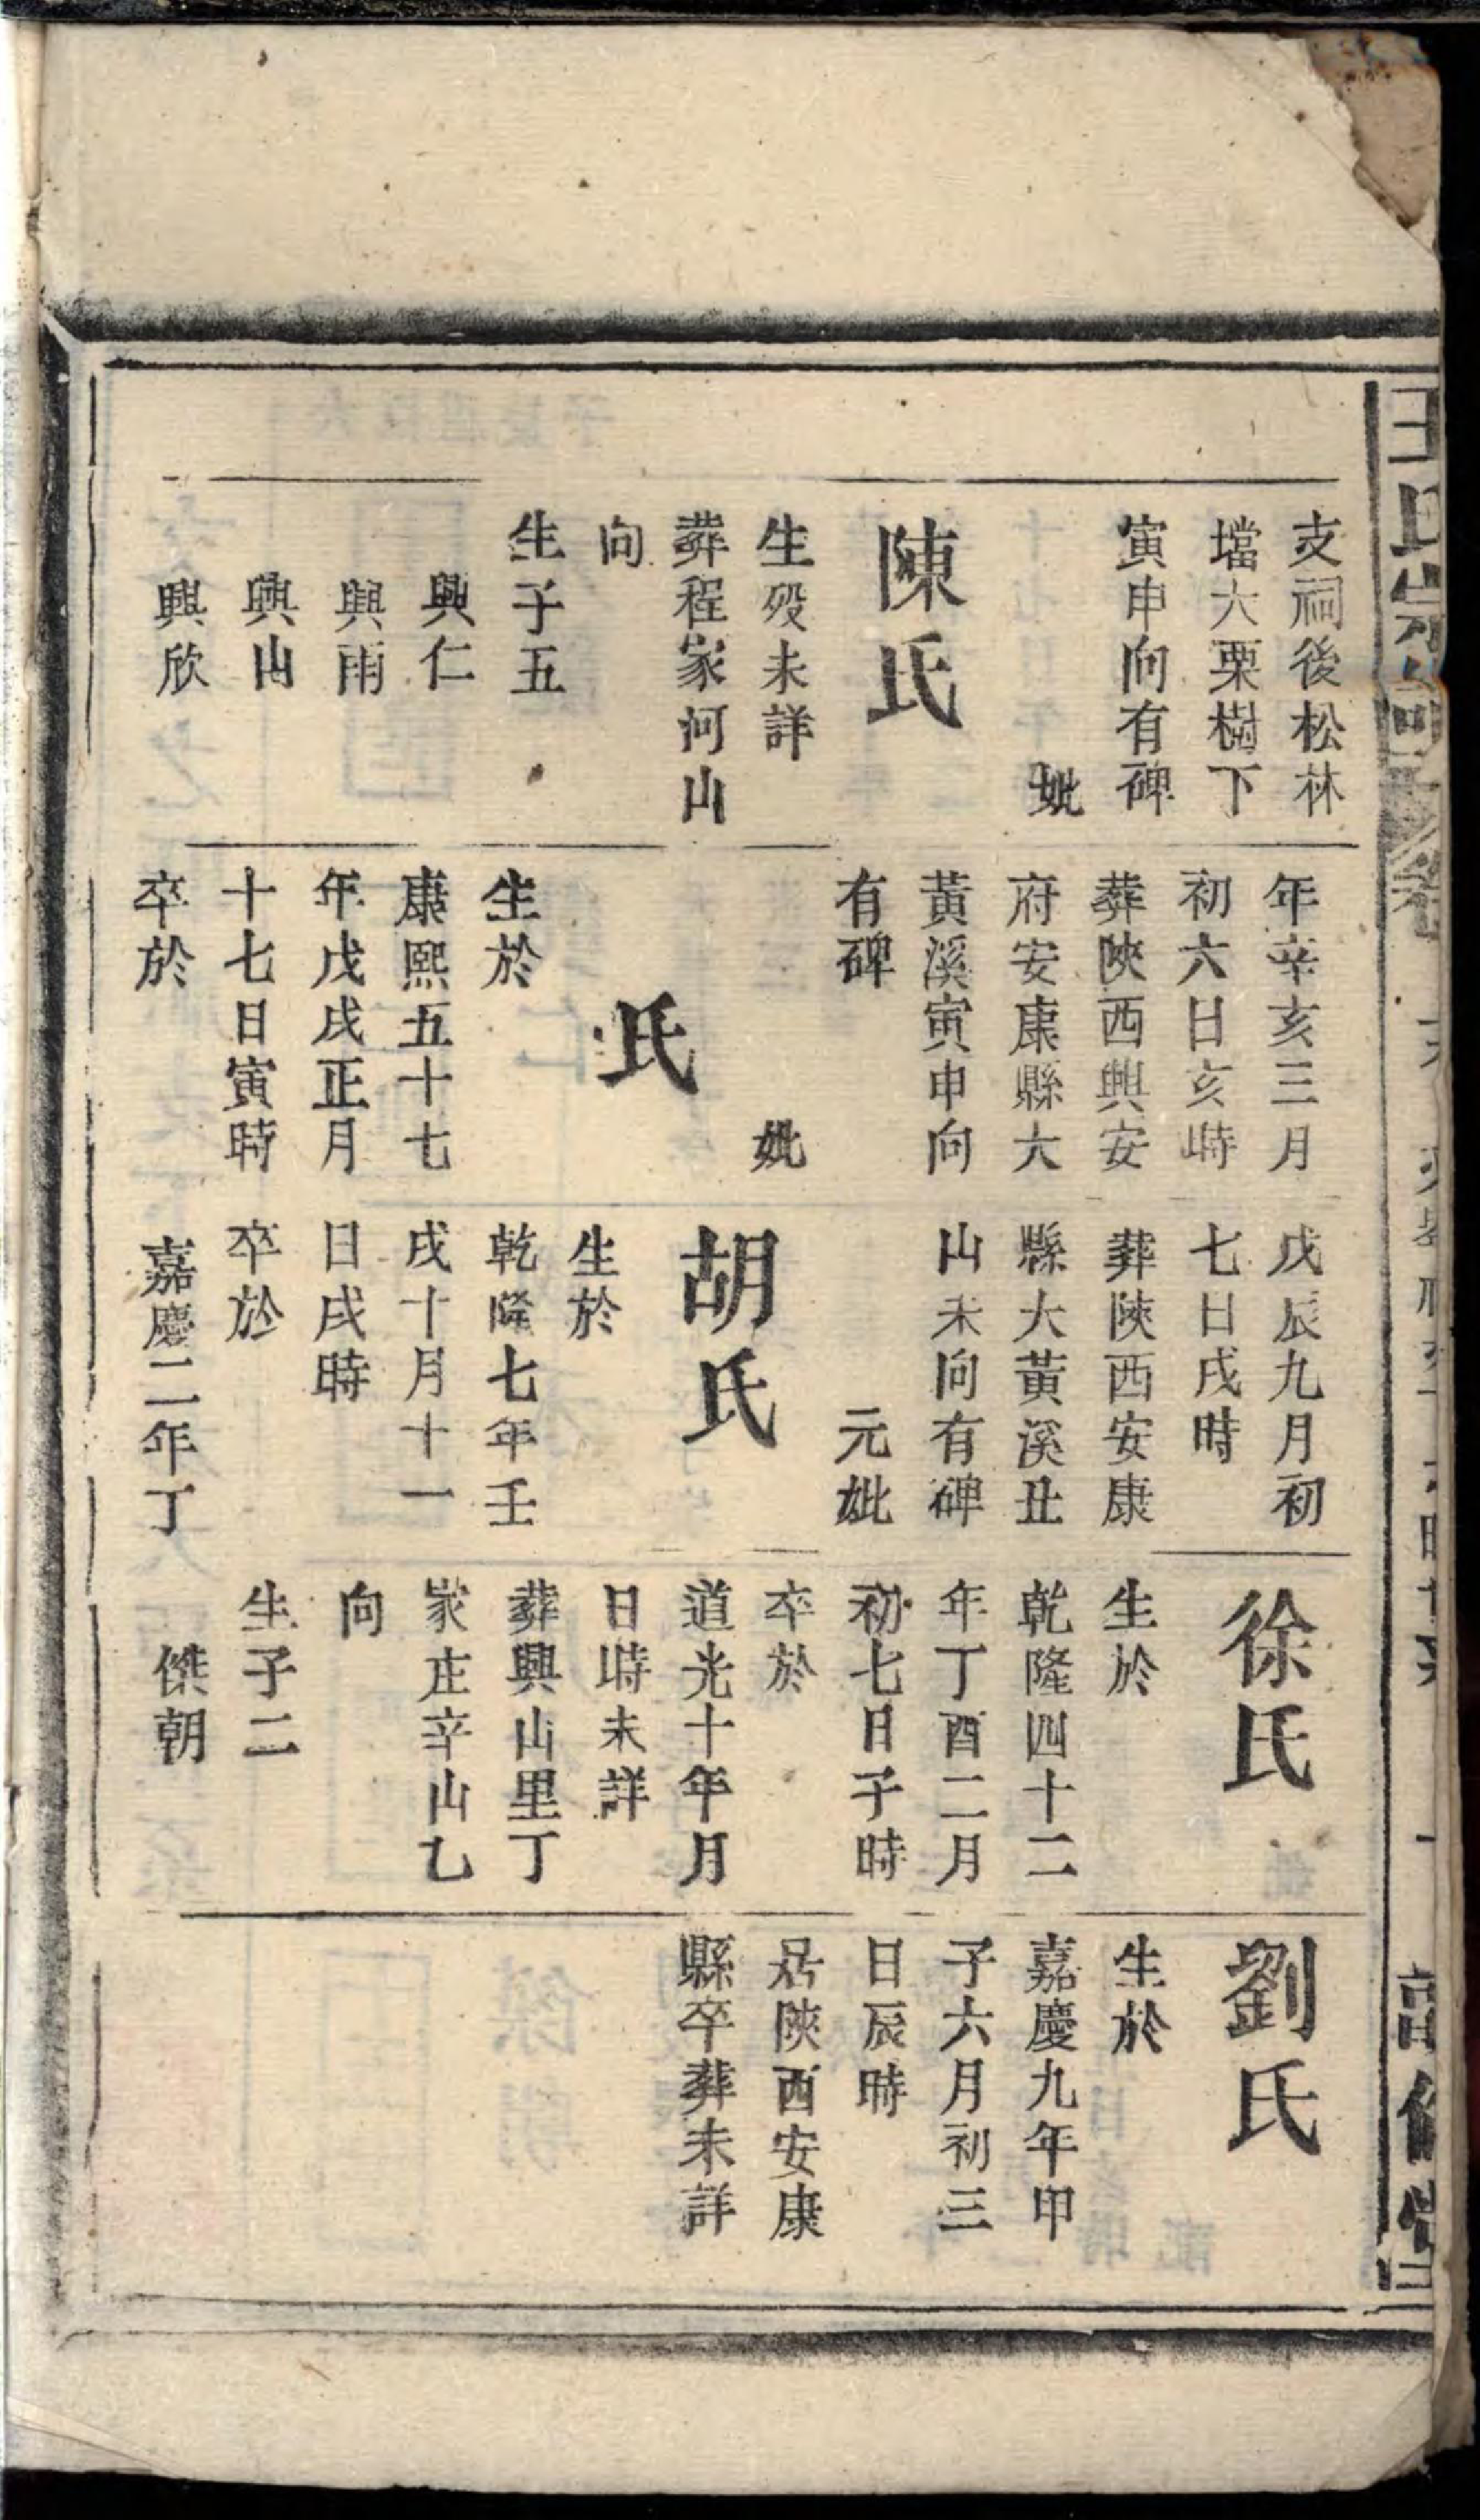 支祠後松林
壋大栗樹下
寅申向有碑
妣
陳氏
生歿未詳
葬程家河山
向
生子五
興仁
興雨
興山
興欣
年辛亥三月
初六日亥時
葬陝西興安
府安康縣大
黃溪寅申向
有碑
妣
氏
生於
康熙五十七
年戊戌正月
十七日寅時
卒於
戊辰九月初
七日戌時
葬陝西安康
縣大黃溪丑
山未向有碑
元妣
胡氏
生於
乾隆七年壬
戌十月十一
日戌時
卒於
嘉慶二年丁
徐氏
生於
乾隆四十二
年丁酉二月
初七日子時
卒於
道光十年月
日時未詳
葬興山里丁
家庄辛山乙
向
生子二
傑朝
劉氏
生於
嘉慶九年甲
子六月初三
日辰時
居陝西安康
縣卒葬未詳
王氏宗